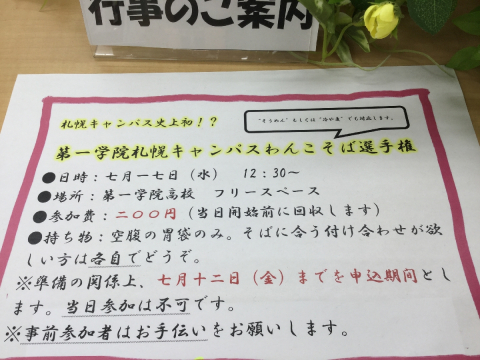 行事のご案内
札幌キャンパス史上初！？
"そうめん"もしくは"冷や麦"でも対応します。
第一学院札幌キャンパスわんこそば選手権
●日時：七月一七日（水）　12：30～
●場所：第一学院高校　フリースペース
●参加費：二〇〇円（当日開始前に回収します）
●持ち物：空腹の胃袋のみ。そばに合う付け合わせが欲
しい方は各自でどうぞ。
※準備の関係上、七月十二日（金）までを申込期間としま
す。当日参加は不可です。
※事前参加者はお手伝いをお願いします。